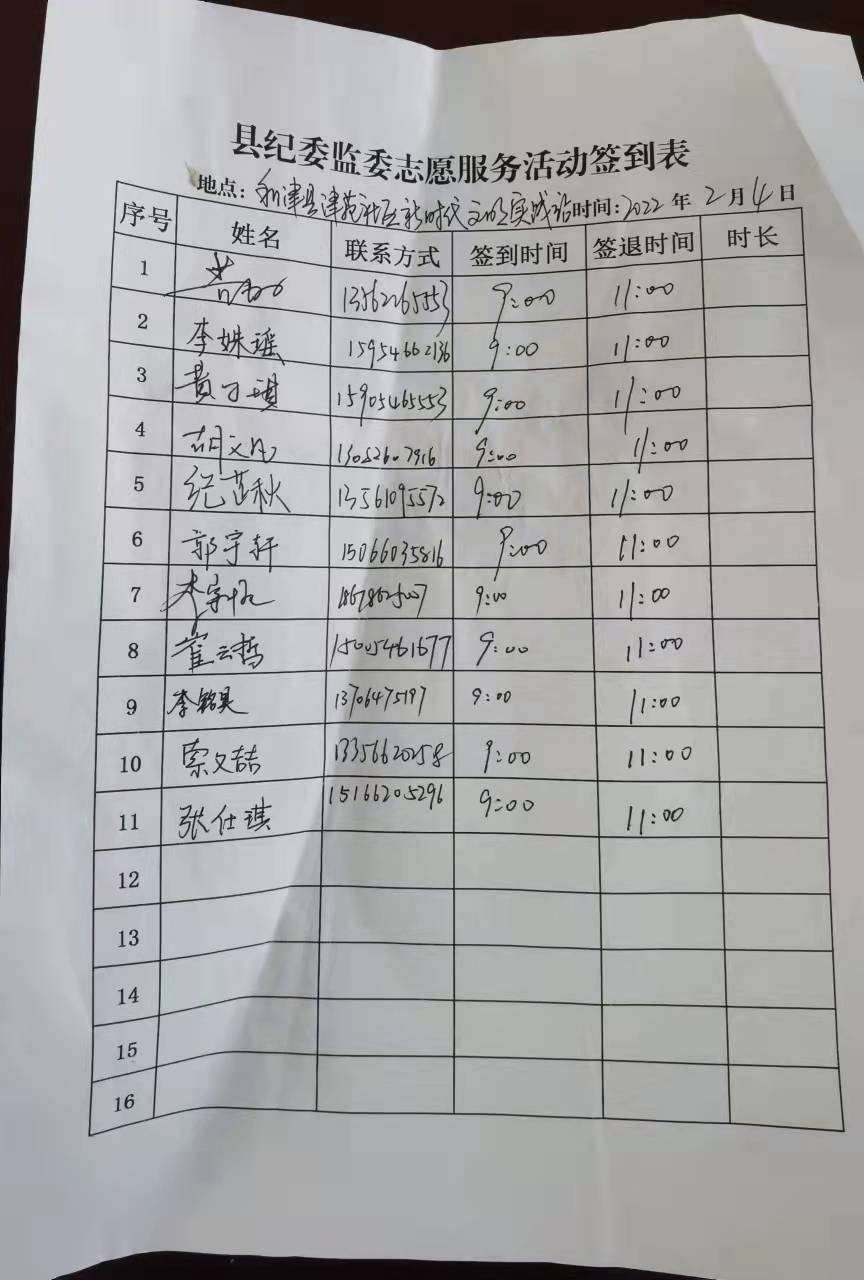 县纪委监委志愿服务活动签到表
地点：利津县津苑社区新时代文明实践站时间：2022年2月4日
序号 姓名 联系方式 签到时间 签退时间 时长
1 13562265553 9:00 11:00
2 李姝瑶 15954662136 9:00 11:00
3 黄子琪 15905465553 9:00 11:00
4 胡文凡 13052607916 9:00 11:00
5 纪芷秋 13561095572 9:00 11:00
6 郭宇轩 15066035816 9:00 11:00
7 李宗恒 18678625007 9:00 11:00
8 崔云哲 15005461677 9:00 11:00
9 李铭昊 13706475197 9:00 11:00
10 索文喆 13356620258 9:00 11:00
11 张仕琪 15166205296 9:00 11:00
12
13
14
15
16